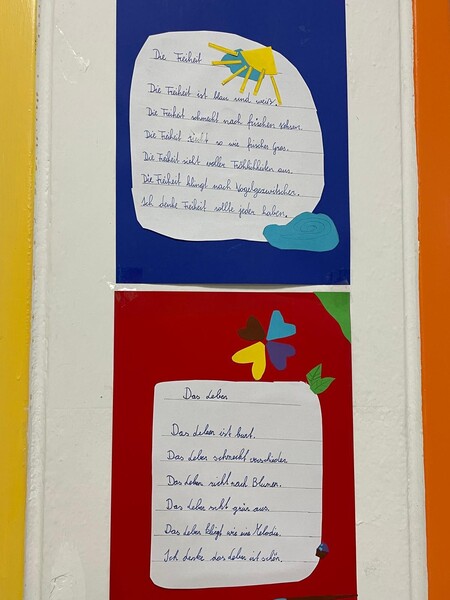 Die Freiheit
Die Freiheit ist blau und weiß.
Die Freiheit schmeckt nach frischen
Die Freiheit so wie frisches Gras.
Die Freiheit sieht voller Fröhlichkeiten aus.
Die Freiheit klingt nach Vogelgezwitscher.
Ich denke Freiheit sollte jeder haben.
Das Leben
Das Leben ist bunt.
Das Leben schmeckt verschieden
Das Leben riecht nach Blumen.
Das Leben grün aus.
Das Leben klingt wie eine Melodie.
Ich denke das Leben ist schön.